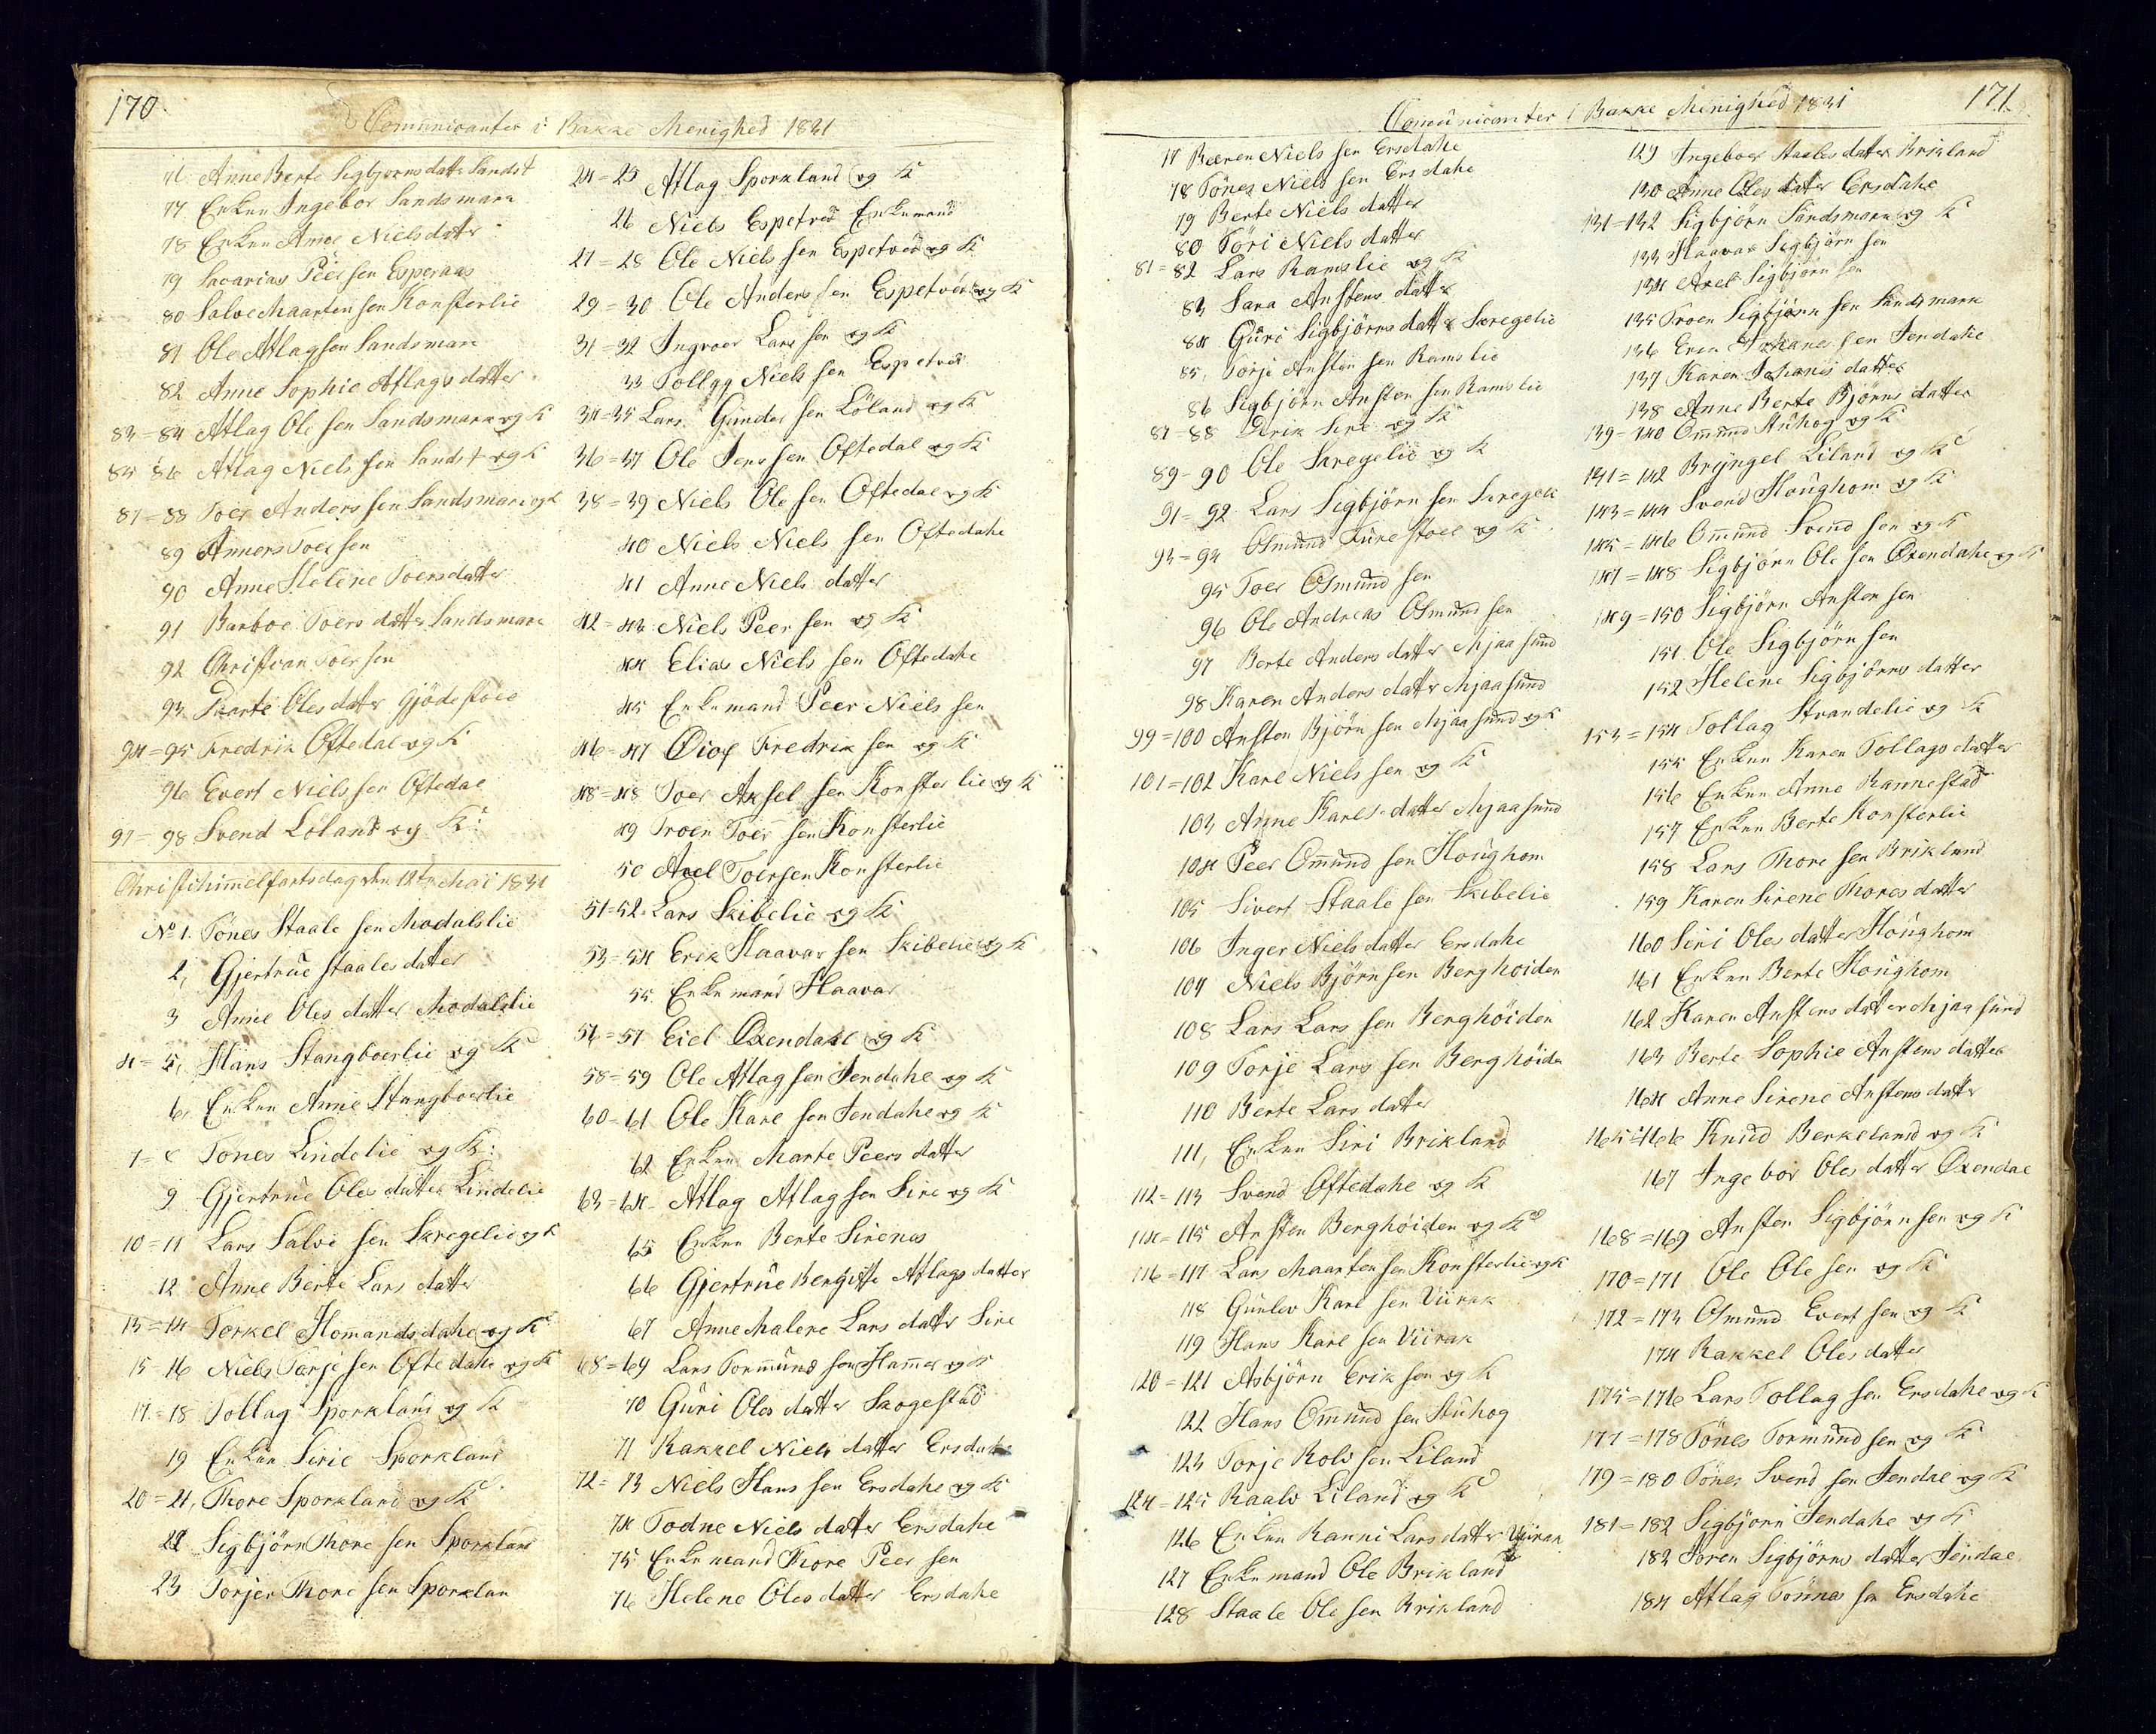 170.
Comunicanter i Bakke Menighed 1831
76 Anne Berte Sigbjornsdatter Sandst
77 Enken Ingebor Sandsmark
78 Enken Anne Nielsdatter
79 Sacarias Peersen Esperaas
80 Salve Maartensen Konsterlie
81 Ole Atlagsen Sandsmark
82 Anne Sophie Atlagsdatter
83=84 Atlag Ole sen Sandsmark og K
85=86 Atlag Niels sen Sandst og K
87=88 Toer Anders sen Sandsmark og K
89 Anners Toersen
90 Anne Helene Toersdatter
91 Barboe Toers datter Sandsmark
92 Christian Toersen
93 Marte Oles datter Gjödestoel
94=95 Fredrik Oftedal og K
96 Evert Niels sen Oftedal
97=98 Svend Löland og K:
Christihimelfartsdag den 12te Mai 1831
No 1. Tönes Staale sen Modalslie
2, Gjertrue Staalesdatter
3 Anne Oles datter Modalslie
4=5, Hans Stangboerlie og K
6, Enken Anne Stangboerlie
7=8 Tönes Lindelie og K:
9 Gjertrue Oles datter Lindelie
10=11 Lars Salve sen Skregelie og K
12 Anne Berte Lars datter
13=14 Terkel Homandsdahl og K
15=16 Niels Terje sen Oftedahl og K
17=18 Tollag Sporkland og K
19 Enken Sirie Sporkland
20=21, Thore Sporkland og K
22 Sigbjörn Thore sen Sporkland
23 Torjer Thore sen Sporklan
24=25 Atlag Sporkland og K
26 Niels Espetved Enkemand
27=28 Ole Niels sen Espetved og K
29=30 Ole Anders sen Espetved og K
31=32 Ingvoer Lars sen og K
33 Tollag Niels sen Espetved
34=35 Lars Gunder sen Löland og K
36=37 Ole Jens sen Oftedal og K
38=39 Niels Ole sen Oftedal og K
40 Niels Niels sen Oftedahl
41 Anne Niels datter
42=43 Niels Peer sen og K
44 Elias Niels sen Oftedahl
45 Enkemand Peer Niels sen
46=47 Fredrik sen og K
48=48 Toer Aksel sen Konsterlie og K
49 Troen Toer sen Konsterlie
50 Axel Toersen Konsterlie
51=52. Lars Skibelie og K
53=54 Erik Haavar sen Skibelie og K
55 Enkemand Haavar
56=57 Eiel Oxendahl og K
58=59 Ole Atlag sen Jendahl og K
60=61 Ole Karl sen Jendahl og K
62 Enken Marte Peers datter
63=64 Atlag Atlag sen Sire og K
65 Enken Berte Sirenes
66 Gjertrue Bergitte Atlags datter
67 Anne Malene Lars datter Sire
68=69 Lars Tormund sen Hamer og K
70 Guri Oles datter Skogestad
71 Rakkel Niels datter Ersdahl
72=73 Niels Hans sen Ersdahl og K
74 Todne Niels datter Ersdahl
75 Enkemand Thore Peer sen
76 Helene Oles datter Ersdahl
Comunicanter i Bakke Menighed 1831
171.
77 Beeren Niels sen Ersdahl
78 Tönes Niels sen Ersdahl
79 Berte Niels datter
80 Töri Niels datter
81=82 Lars Ramslie og K
83 Sara Anstens datter
84 Guri Sigbjörns datter Skregelie
85, Torje Ansten sen Ramslie
86 Sigbjörn Ansten sen Ramslie
87=88 Erik Sire og K
89=90 Ole Skregelie og K
91=92 Lars Sigbjörn sen Skregeli
93=94 Osmund Furestoel og K
95 Toer Osmund sen
96 Ole Andreas Osmund sen
97 Berte Anders datter Mjaasund
98 Karen Anders datter Mjaasund
99=100 Ansten Björn sen Mjaasund og K
101=102 Karl Niels sen og K
103 Anne Karls datter Mjaasund
104 Peer Omund sen Houghom
105 Sivert Staale sen Skibelie
106 Inger Niels datter Ersdahl
107 Niels Björn sen Berghöiden
108 Lars Lars sen Berghöiden
109 Torje Lars sen Berghöiden
110 Berte Lars datter
111, Enken Siri Brikland
112=113 Svend Oftedahl og K
114=115 Ansten Berghöiden og K
116=117 Lars Maarten sen Konsterlie og K
118 Gunlev Karl sen Viirak
119 Hans Karl sen Viirak
120=121 Asbjörn Erik sen og K
122 Hans Omund sen Stuhog
123 Torje Rolv sen Liland
124=125 Raalv Liland og K
126 Enken Ranni Lars datter Viirak
127 Enkemand Ole Brikland
128 Staale Ole sen Brikland
129 Ingeboer Staales datter Brikland
130 Anne Oles datter Ersdahl
131=132 Sigbjörn Sandsmark og K
133 Haavar Sigbjörn sen
134 Axel Sigbjörn sen
135 Troen Sigbjörn sen Sandsmark
136 Johanes sen Jendahl
137 Karen Johanes datter
138 Anne Berte Björns datter
139=140 Omund Stuhog og K
141=142 Bryngel Liland og K
143=144 Svend Houghom og K
145=146 Omund Svend sen og K
147=148 Sigbjörn Ole sen Oxendahl og K
149=150 Sigbjörn Ansten sen
151 Ole Sigbjörn sen
152 Helene Sigbjörns datter
153=154 Tollag Strandelie og K
155 Enken Karen Tollags datter
156 Enken Anne Rannestad
157 Enken Berte Konsterlie
158 Lars Thore sen Brikland
159 Karen Sirene Thores datter
160 Siri Oles datter Houghom
161 Enken Berte Houghom
162 Karen Anstens datter Mjaasund
163 Berte Sophie Anstens datter
164 Anne Sirene Anstens datter
165=166 Knud Berkeland og K
167 Ingebor Oles datter Oxendal
168=169 Ansten Sigbjörn sen og K
170=171 Ole Ole sen og K
172=173 Osmund Evert sen og K
174 Rakkel Oles datter
175=176 Lars Tollag sen Ersdahl og K
177=178 Tönes Tormund sen og K
179=180 Tönes Svend sen Jendal og K
181=182 Sigbjörn Jendahl og K
183 Soren Sigbjörns datter Jendal
184 Atlag Tönnes sen Ersdahl